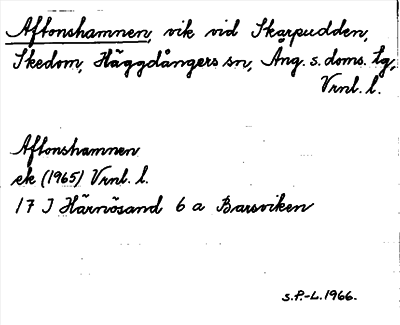 Aftonshamnen, vik vid Skarpudden,
Skedom, Häggdångers sn, Ång. s. doms. tg,
Vrnl. l.
Aftonshamnen
ek (1965) Vrnl. l.
17 J Härnösand 6 a Barsviken
S.P.-L. 1966.